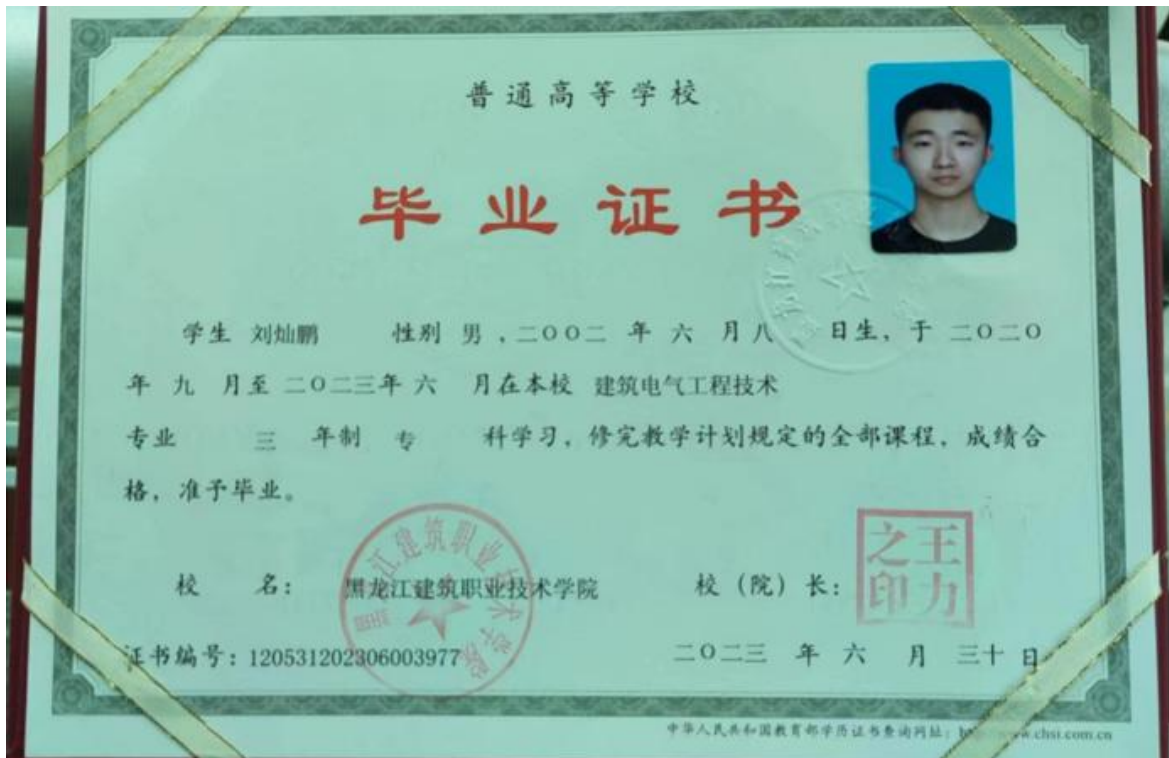 普通高等学校
毕业证书
学生 刘灿鹏 性别 男，二〇〇二 年 六 月 八 日生，于 二〇二〇
年 九 月至 二〇二三年 六 月在本校 建筑电气工程技术
专业 三 年制 专 科学习，修完教学计划规定的全部课程，成绩合
格，准予毕业。
黑龙江建筑职业技术学院
校 名： 黑龙江建筑职业技术学院 校（院）长：
王力之印
证书编号：120531202306003977 二〇二三 年 六 月 三十 日
中华人民共和国教育部学历证书查询网址： www.chsi.com.cn